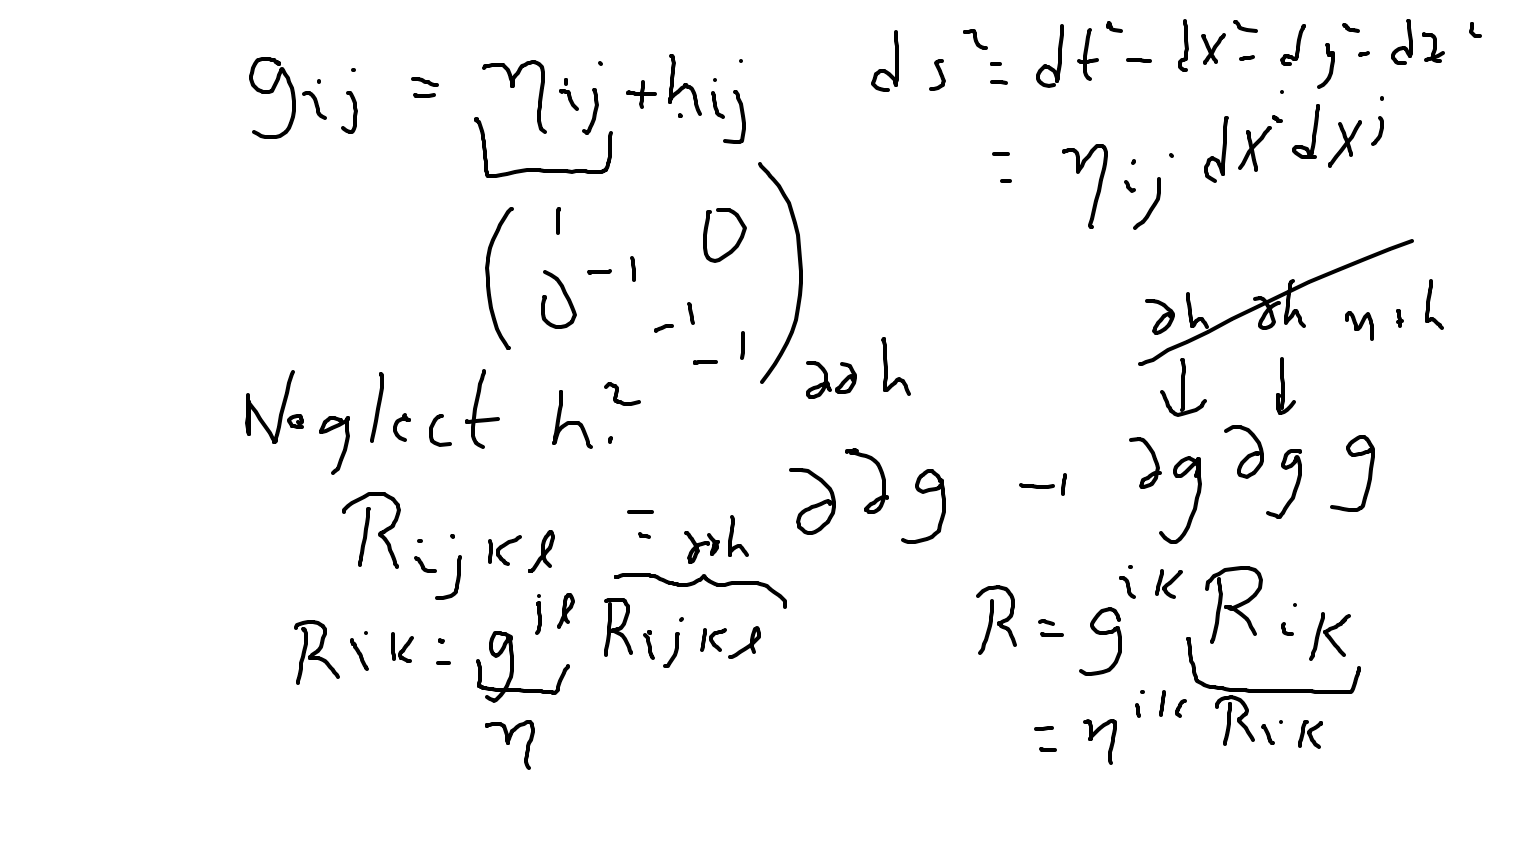 g_{ij} = η_{ij} + h_{ij}
ds² = dt² - dx² - dy² - dz²
= η_{ij} dx^i dx^j
( 1 0
0 -1
-1
-1 )
∂h ∂h η + h
Neglect h².
∂∂h
∂∂g - 1 ∂g ∂g g
R_{ijkl} = ∂∂h
R_{ik} = g^{jl} R_{ijkl}
η
R = g^{ik} R_{ik}
= η^{ik} R_{ik}